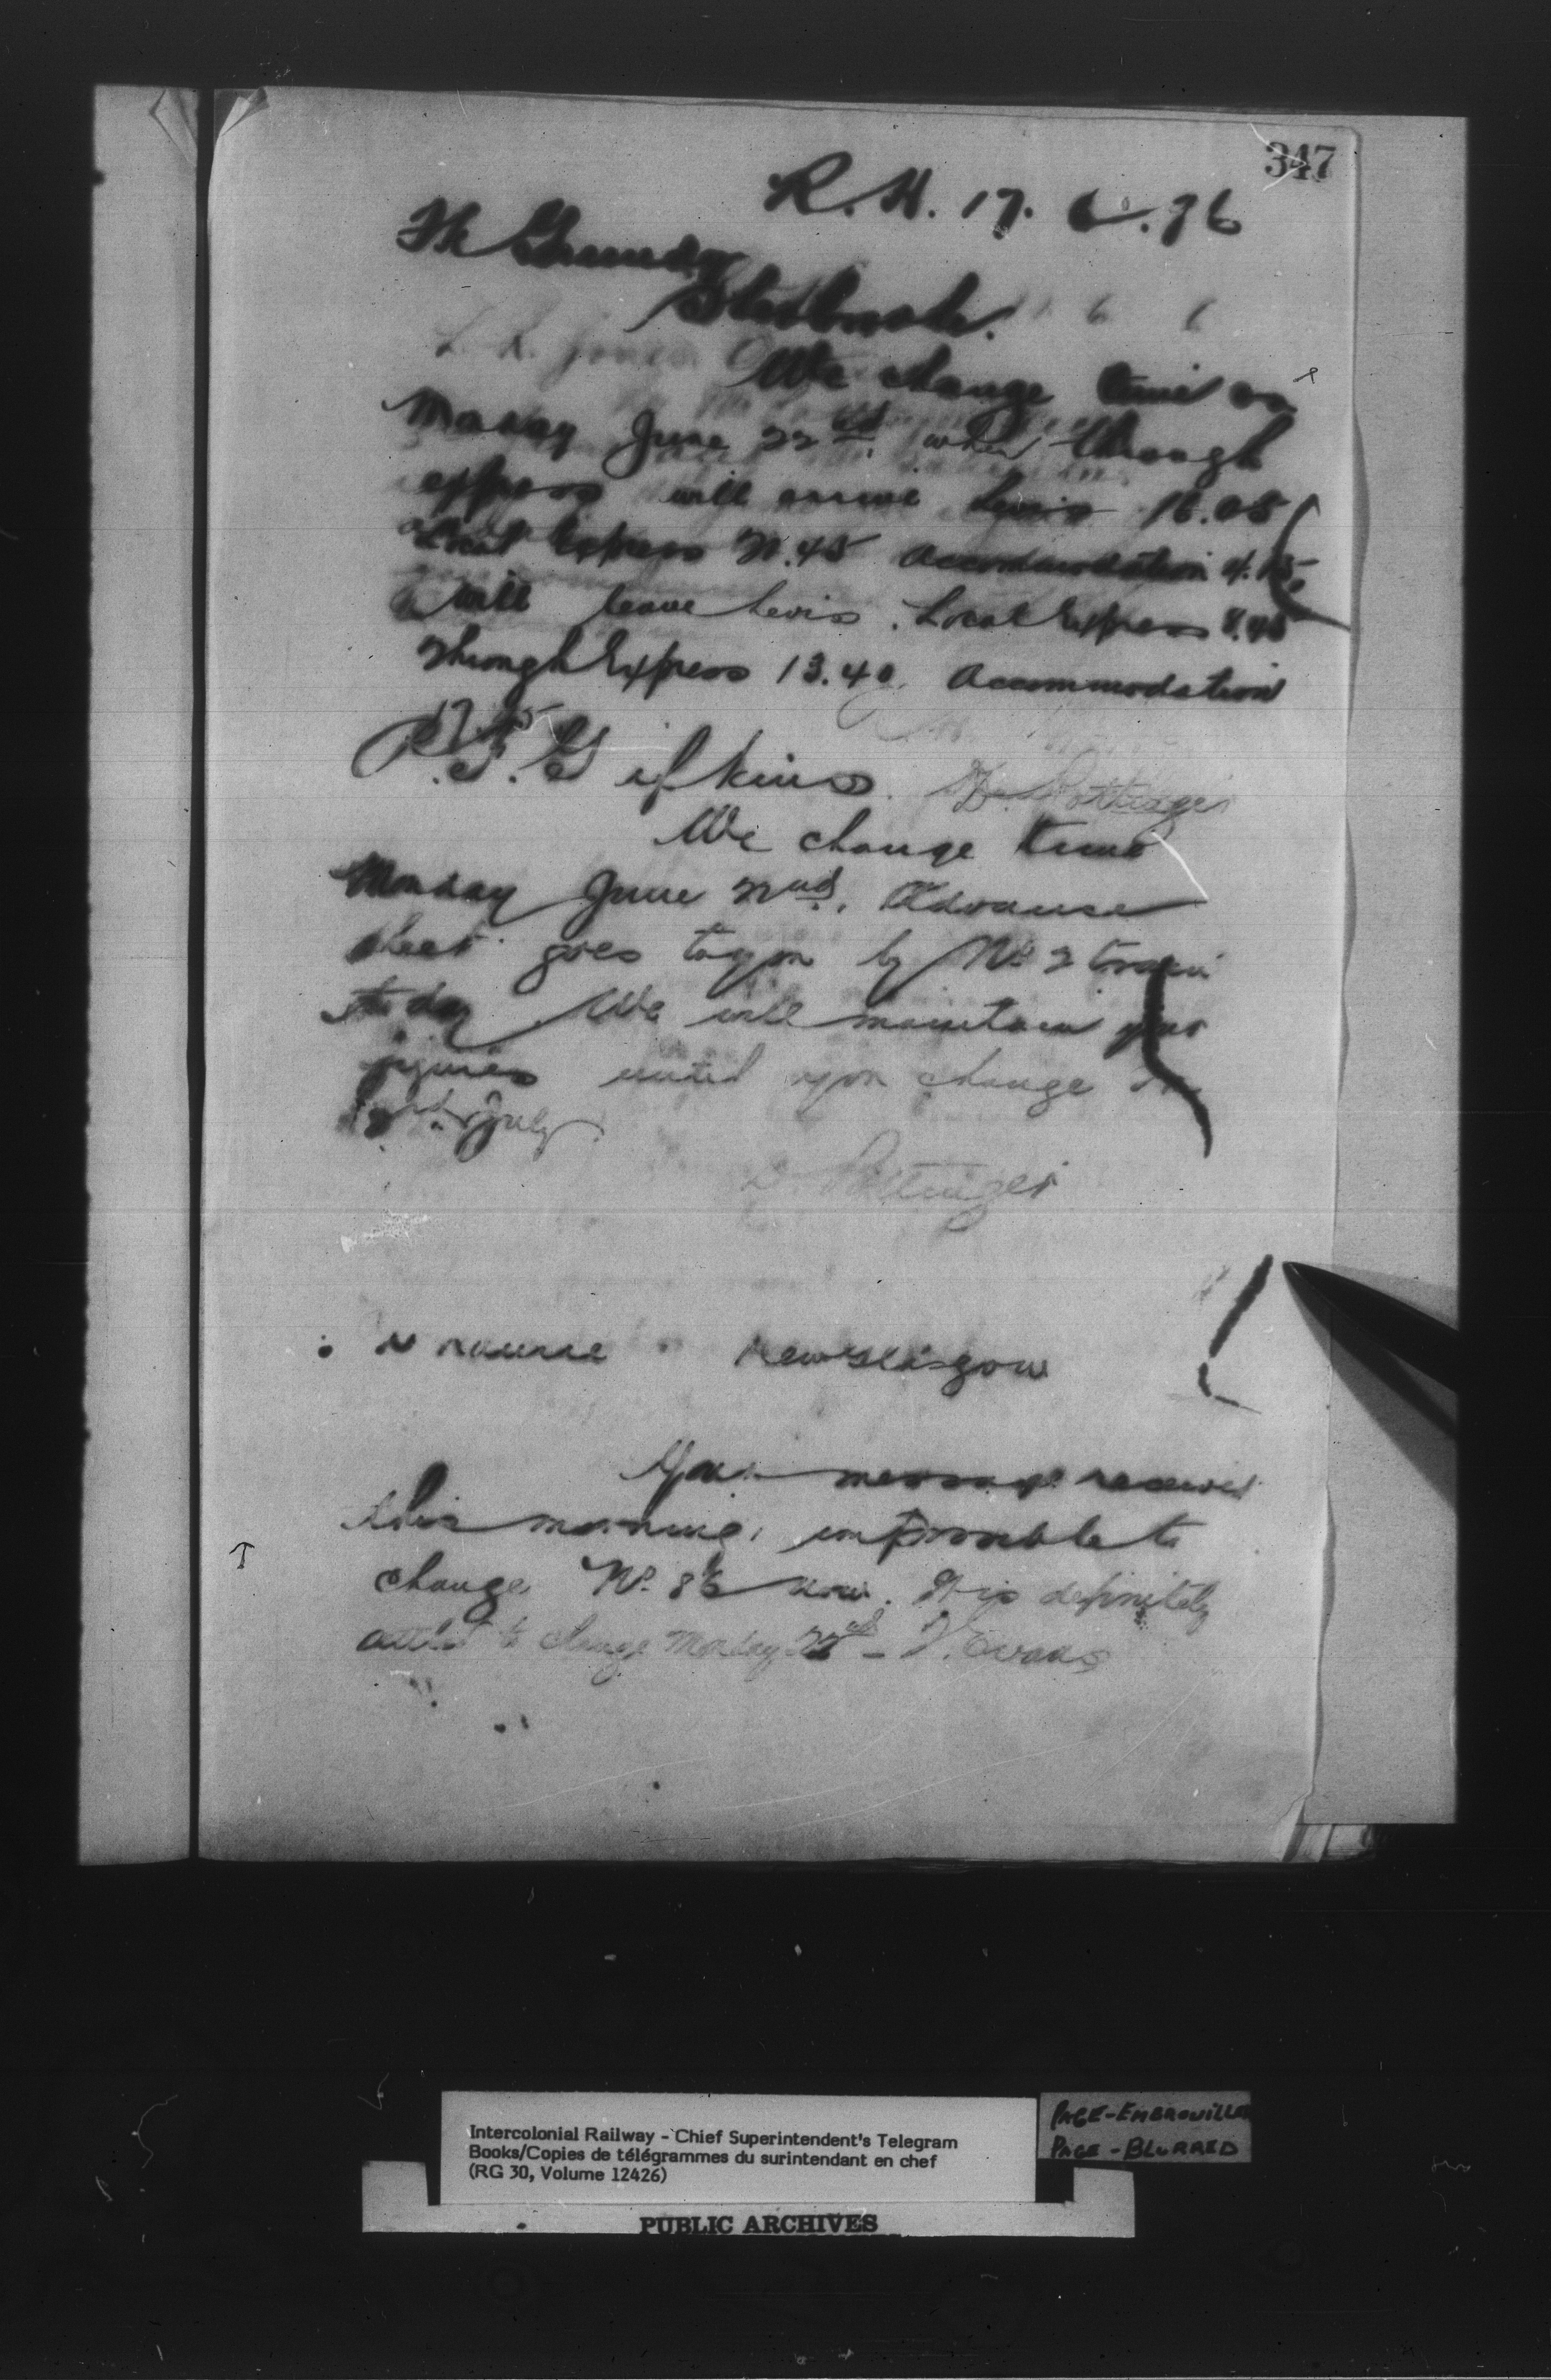 347
R.H. 17. 6. 96
Sherbrooke.
We change time on
Monday June 22nd. when through
express will arrive Levis 16.05
Local Express 21.45 Accommodation 4.15.
Will leave Levis. Local Express 8.45
Through Express 13.40 Accommodation
17.15
P. Gifkins. D. Pottinger
We change time
Monday June 22nd. Advance
sheet goes to you by No. 2 train
to day. We will maintain your
figures until you change on
July.
D. Pottinger
New Glasgow
Your message received
this morning, impossible to
change No. 86 now. It is definitely
to change Monday 22nd - J. Evans
Intercolonial Railway - Chief Superintendent's Telegram
Books/Copies de télégrammes du surintendant en chef
(RG 30, Volume 12426)
PAGE-EMBROUILLE
PAGE-BLURRED
PUBLIC ARCHIVES